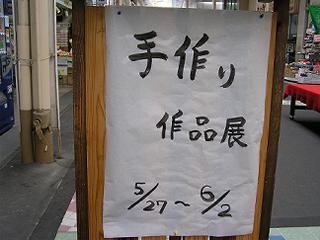 手作り
作品展
5/27〜6/2